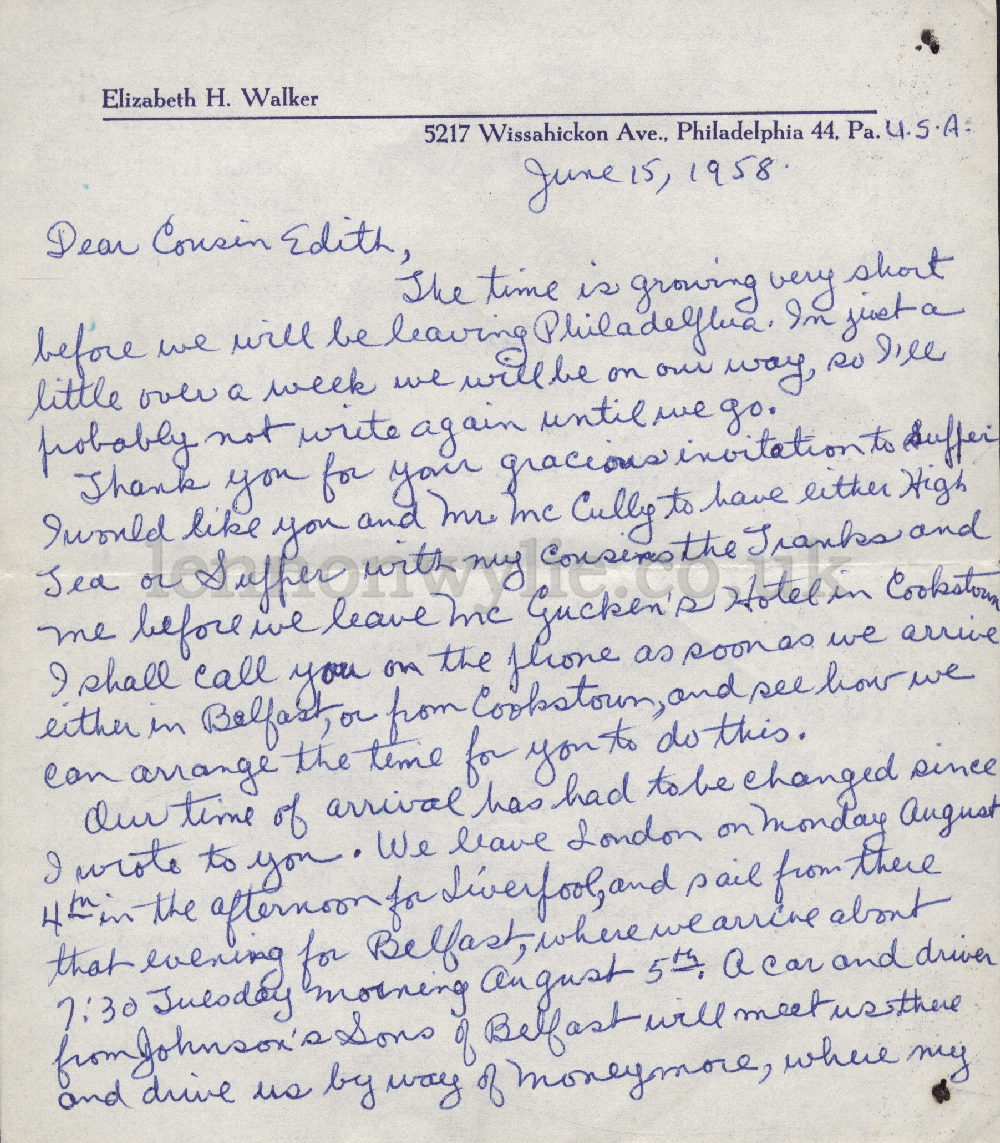 Elizabeth H. Walker
5217 Wissahickon Ave., Philadelphia 44, Pa. U.S.A.
June 15, 1958.
Dear Cousin Edith,
The time is growing very short
before we will be leaving Philadelphia. In just a
little over a week we will be on our way, so I'll
probably not write again until we go.
Thank you for your gracious invitation to supper
I would like you and Mr. McCully to have either High
Tea or Supper with my cousins the Tranks and
me before we leave McGucken's Hotel in Cookstown
I shall call you on the phone as soon as we arrive
either in Belfast, or from Cookstown, and see how we
can arrange the time for you to do this.
Our time of arrival has had to be changed since
I wrote to you. We leave London on Monday August
4th in the afternoon for Liverpool, and sail from there
that evening for Belfast, where we arrive about
7:30 Tuesday morning August 5th. A car and driver
from Johnson's Sons of Belfast will meet us there
and drive us by way of Moneymore, where my
lennonwylie.co.uk